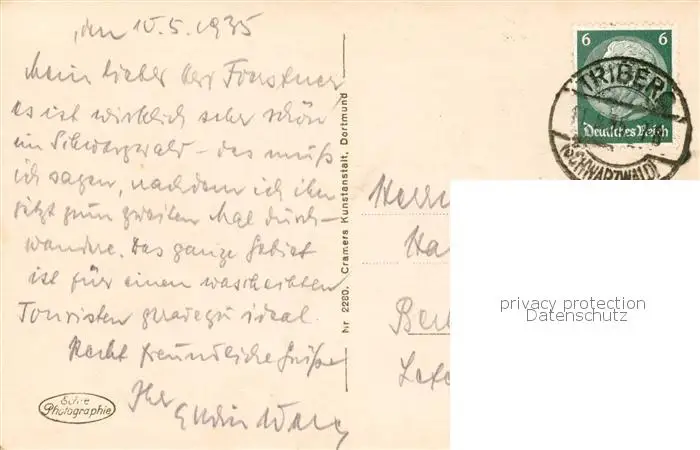 den 10.5.1935
Mein lieber Herr
es ist wirklich sehr schön
im Schwarzwald – das muß
ich sagen, nachdem ich ihn
jetzt zum zweiten Mal durch-
wandere. Das ganze Gebiet
ist für einen waschechten
Touristen geradezu ideal.
Recht freundliche Grüße
Ihr
Echte
Photographie
Nr 2280. Cramers Kunstanstalt, Dortmund
6 6
Deutsches Reich
TRIBERG
(SCHWARZWALD)
Herrn
Ha
Ber
privacy protection
Datenschutz